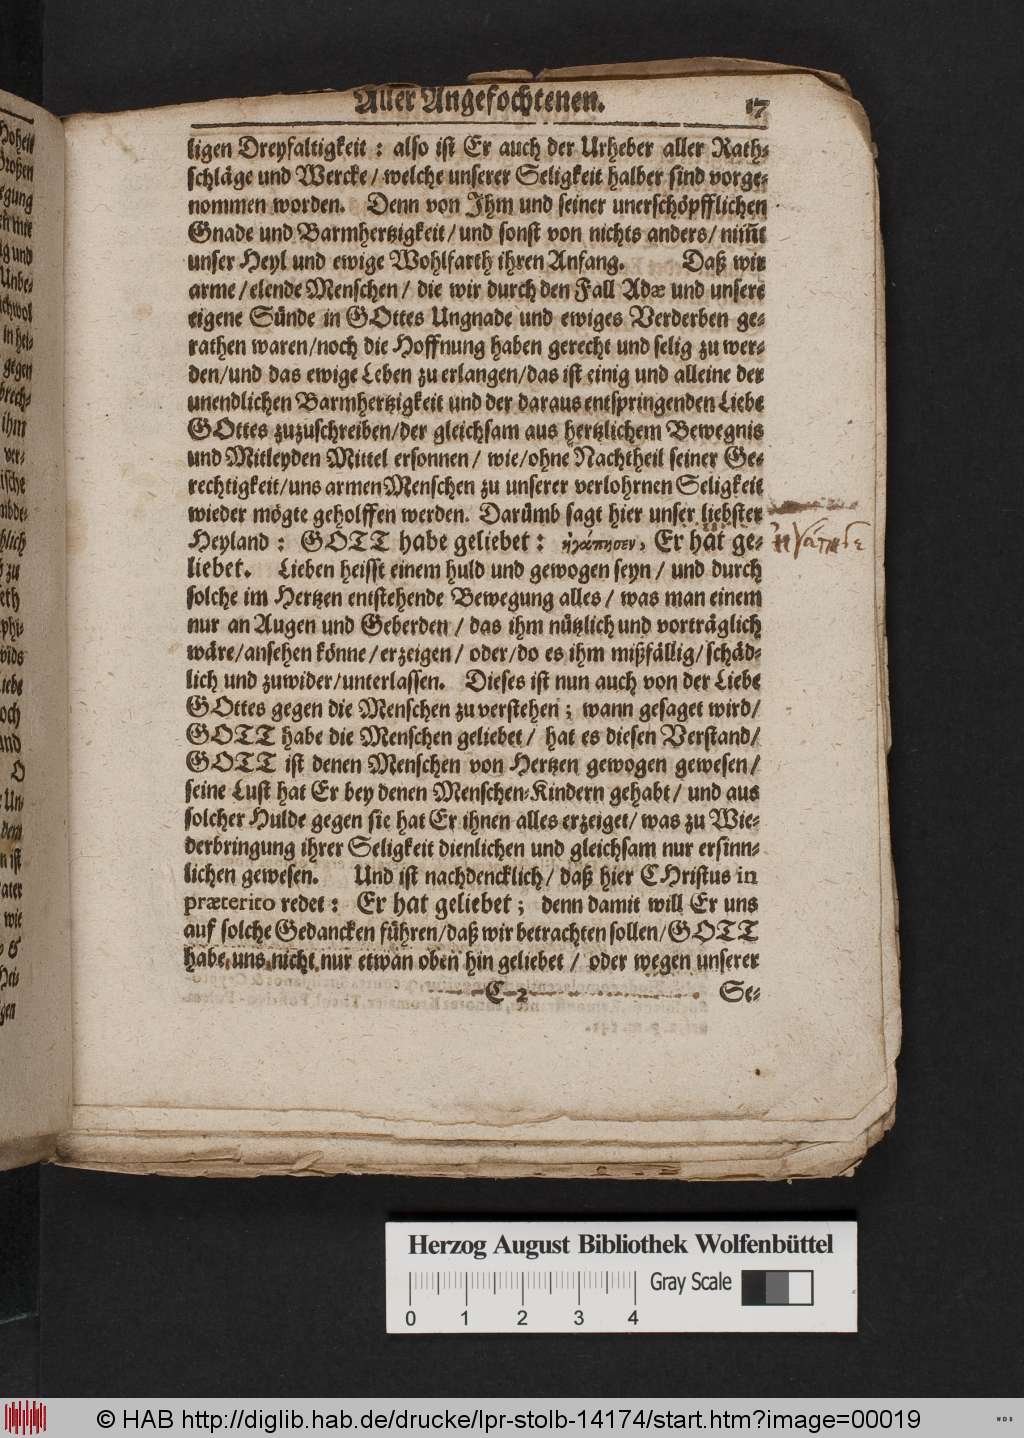 Aller Angefochtenen. 17
ligen Dreyfaltigkeit : also ist Er auch der Urheber aller Rath-
schläge und Wercke / welche unserer Seligkeit halber sind vorge-
nommen worden. Denn von Ihm und seiner unerschöpfflichen
Gnade und Barmhertzigkeit / und sonst von nichts anders / nim̃t
unser Heyl und ewige Wohlfarth ihren Anfang. Daß wir
arme / elende Menschen / die wir durch den Fall Adæ und unsere
eigene Sünde in GOttes Ungnade und ewiges Verderben ge-
rathen waren / noch die Hoffnung haben gerecht und selig zu wer-
den / und das ewige Leben zu erlangen / das ist einig und alleine der
unendlichen Barmhertzigkeit und der daraus entspringenden Liebe
GOttes zuzuschreiben / der gleichsam aus hertzlichem Bewegnis
und Mitleyden Mittel ersonnen / wie / ohne Nachtheil seiner Ge-
rechtigkeit / uns armen Menschen zu unserer verlohrnen Seligkeit
wieder mögte geholffen werden. Darümb sagt hier unser liebster
Heyland : GOTT habe geliebet : ἠγάπησεν, Er hat ge-
liebet. Lieben heisst einem huld und gewogen seyn / und durch
solche im Hertzen entstehende Bewegung alles / was man einem
nur an Augen und Geberden / das ihm nützlich und vorträglich
wäre / ansehen könne / erzeigen / oder / do es ihm mißfällig / schäd-
lich und zuwider / unterlassen. Dieses ist nun auch von der Liebe
GOttes gegen die Menschen zu verstehen ; wann gesaget wird /
GOTT habe die Menschen geliebet / hat es diesen Verstand /
GOTT ist denen Menschen von Hertzen gewogen gewesen /
seine Lust hat Er bey denen Menschen-Kindern gehabt / und aus
solcher Hulde gegen sie hat Er ihnen alles erzeiget / was zu Wie-
derbringung ihrer Seligkeit dienlichen und gleichsam nur ersinn-
lichen gewesen. Und ist nachdencklich / daß hier CHristus in
præterito redet : Er hat geliebet ; denn damit will Er uns
auf solche Gedancken führen / daß wir betrachten sollen / GOTT
habe uns nicht nur etwan oben hin geliebet / oder wegen unserer
C 2 Se-
Herzog August Bibliothek Wolfenbüttel
0 1 2 3 4 Gray Scale
© HAB http://diglib.hab.de/drucke/lpr-stolb-14174/start.htm?image=00019